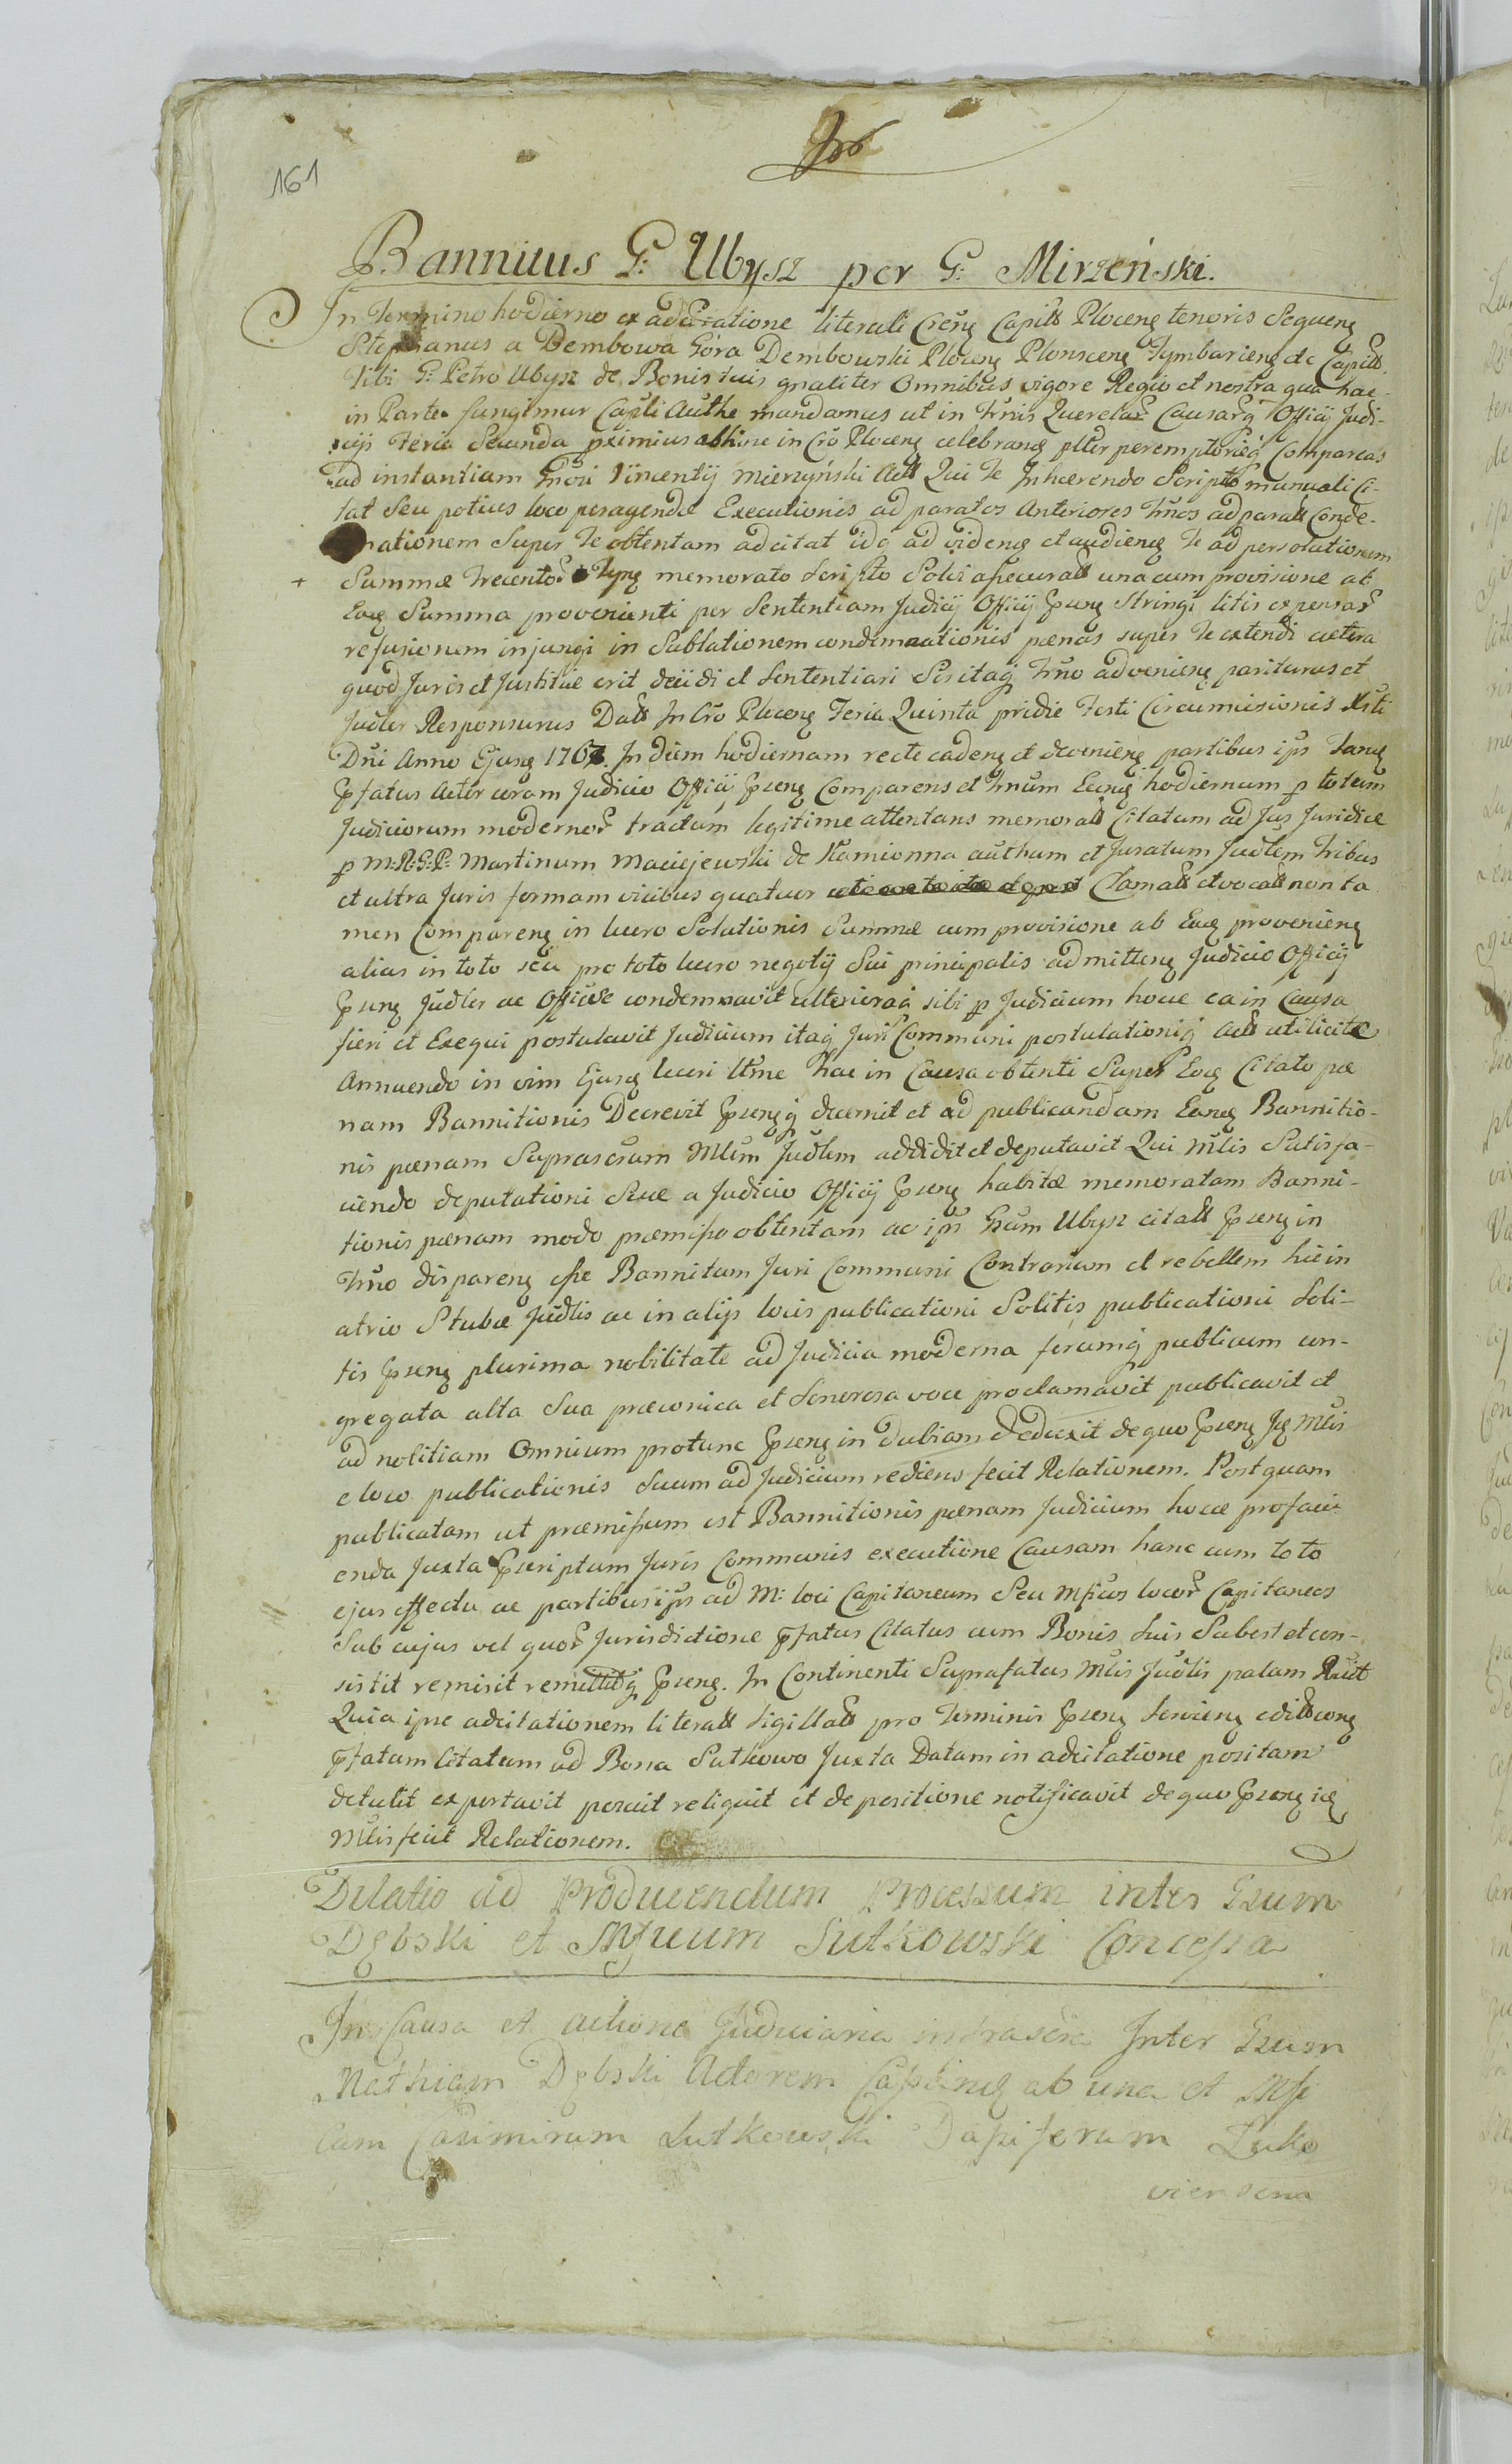 161
Bannitus G: Ubysz per G: Mirzeński.
In Termino hodierno ex adcitatione literali Creñ Capitt Plocen tenoris Sequen
Stephanus a Dembowa Góra Dembowski Plocen Plonscen Tymbarien etc Capitt
Tibi G: Petro Ubysz de Bonis tuis gnaliter Omnibus vigore Regio et nostra qua hac
in Parte fungimur Capli Authe mandamus ut in Trnis Querelar Causarq Officij Judi-
cijs Feria Secunda pximius abhinc in Cro Plocen celebran plter peremptorieq Compareas
ad instantiam Gnosi Vincentij Mierzyński Act Qui Te Inhaerendo Scripto manuali Ci-
tat Seu potius loco peragendae Executionis ad paratos Anteriores Trnos ad paratt Conde-
nationem Super Te obtentam adcitat ido ad viden et audien Te ad persolutionem
Summae Trecentor Tynf memorato Scripto Solvi assecuratt una cum provisione ab
Eaq Summa provenienti per Sententiam Judicij Officij psen Stringi litis expensar
refusionem injungi in Sublationem condemnationis paenas super Te extendi caetera
quod Juris et Justitiae erit decidi et Sententiari Sis itaq Trno advenien pariturus et
Judler Responsurus Datt In Cro Plocen Feria Quinta pridie Festi Circumcisionis Xsti
Dni Anno Ejusq 1767. In diem hodiernam recte caden et devenien partibus ips Tanq
pfatus Actor coram Judicio Officij psen Comparens et Trnum Eunq hodiernum p totum
Judiciorum modernor tractum legitime attentans memoratt Citatum ad Jus Juridice
p M: R: G: P: Martinum Maciejewski de Kamionna autham et Juratum Judlem Tribus
et ultra Juris formam vicibus quatuor Clamatt et vocatt non ta
men Comparen in lucro Solutionis Summae cum provisione ab Eaq provenien
alias in toto seu pro toto lucro negotij Sui principalis admitten Judicio Officij
psen Judler ac Officiose condemnavit ulterioraq sibi p Judicium hocce ea in Causa
fieri et Exequi postulavit Judicium itaq Juri Communi postulationiq Act utilicitae
Annuendo in vim Ejusq lucri ltme hac in Causa obtenti Super Eoq Citato pae
nam Bannitionis Decrevit psenq decernit et ad publicandam Eanq Bannitio-
nis paenam Suprascrum Mlem Judlem addidit et deputavit Qui Mlis Satisfa-
ciendo deputationi Suae a Judicio Officij psen habitae memoratam Banni-
tionis paenam modo praemisso obtentam ac ips Gsum Ubysz citatt psen in
Trno disparen esse Bannitum Juri Communi Contrarium et rebellem hic in
atrio Stubae Judlis ac in alijs locis publicationi Solitis publicationi Soli-
tis psen plurima nobilitate ad Judicia moderna forumq publicum con-
gregata alta Sua praeconica et Sonorosa voce proclamavit publicavit et
ad notitiam Omnium protunc psen in dubiam deduxit de quo psen Jq Mlis
e loco publicationis Suum ad Judicium rediens fecit Relationem. Postquam
publicatam ut praemissum est Bannitionis paenam Judicium hocce pro faci-
enda Juxta pscriptum Juris Communis executione Causam hanc cum toto
ejus effectu ac partibus ips ad M: loci Capitaneum Seu Mficos locor Capitaneos
Sub cujus vel quor Jurisdictione pfatus Citatus cum Bonis Suis Subest et con-
sistit remisit remittitq psen. In Continenti Suprafatus Mlis Judlis palam Recit
Quia ipse adcitationem literatt Sigillatt pro Terminis psen Servien editt con
pfatum Citatum ad Bona Sutkowo Juxta Datam in adcitatione positam
detulit exportavit posuit reliquit et de positione notificavit de quo psen iq
Mlis fecit Relationem.
Dilatio ad Producendum Processum inter Gsum
Dębski et Mficum Sutkowski Concessa
In Causa et actione Judiciaria infrascra Inter Gsum
Mathiam Dębski Actorem ab una et Mfi
cum Casimirum Sutkowski Dapiferum Zakro
ciensem